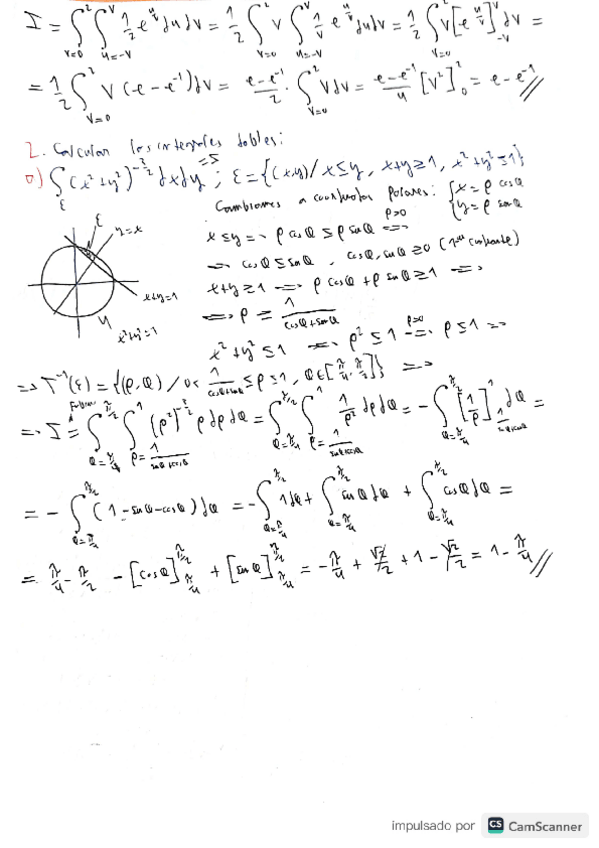 I = ∫_{v=0}^{2} ∫_{u=-v}^{v} 1/2 e^{u/v} du dv = 1/2 ∫_{v=0}^{2} v ∫_{u=-v}^{v} 1/v e^{u/v} du dv = 1/2 ∫_{v=0}^{2} v [e^{u/v}]_{-v}^{v} dv =
= 1/2 ∫_{v=0}^{2} v (e - e^{-1}) dv = (e - e^{-1})/2 · ∫_{v=0}^{2} v dv = (e - e^{-1})/4 [v^2]_0^2 = e - e^{-1} //
2. Calcular las integrales dobles:
a) ∫_ε (x^2+y^2)^{-3/2} dx dy ; ε = {(x,y) / x ≤ y, x+y ≥ 1, x^2+y^2 ≤ 1}
Cambiamos a coordenadas Polares: { x = ρ cos θ
{ y = ρ sen θ
ε
y=x
x+y=1
x^2+y^2=1
x ≤ y => ρ cos θ ≤ ρ sen θ =>^{ρ>0}
=> cos θ ≤ sen θ, cos θ, sen θ ≥ 0 (1er cuadrante)
x+y ≥ 1 => ρ cos θ + ρ sen θ ≥ 1 =>
=> ρ ≥ 1/(cos θ + sen θ)
x^2+y^2 ≤ 1 => ρ^2 ≤ 1 =>^{ρ>0} ρ ≤ 1 =>
=> T^{-1}(ε) = {(ρ,θ) / 0 < 1/(cos θ + sen θ) ≤ ρ ≤ 1, θ ∈ [π/4, π/2]} =>
=> I = ∫_{θ=π/4}^{π/2} ∫_{ρ=1/(sen θ + cos θ)}^{1} (ρ^2)^{-3/2} ρ dρ dθ = ∫_{θ=π/4}^{π/2} ∫_{ρ=1/(sen θ + cos θ)}^{1} 1/ρ^2 dρ dθ = - ∫_{θ=π/4}^{π/2} [1/ρ]_{1/(sen θ + cos θ)}^{1} dθ =
= - ∫_{θ=π/4}^{π/2} (1 - sen θ - cos θ) dθ = - ∫_{θ=π/4}^{π/2} 1 dθ + ∫_{θ=π/4}^{π/2} sen θ dθ + ∫_{θ=π/4}^{π/2} cos θ dθ =
= π/4 - π/2 - [cos θ]_{π/4}^{π/2} + [sen θ]_{π/4}^{π/2} = - π/4 + √2/2 + 1 - √2/2 = 1 - π/4 //
impulsado por CS CamScanner